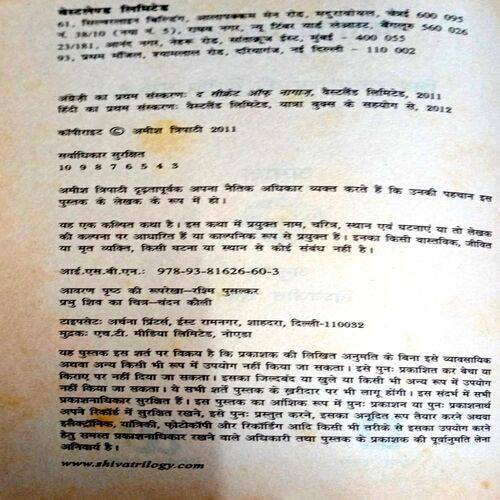 वेस्टलैण्ड लिमिटेड
61, सिल्वरलाइन बिल्डिंग, आलापक्कम मेन रोड, मदुरावोयल, चेन्नई 600 095
नं. 38/10 (नया नं. 5), राघव नगर, न्यू टिंबर यार्ड लेआउट, बैंगलूर 560 026
23/181, आनंद नगर, नेहरू रोड, सांताक्रूज ईस्ट, मुंबई - 400 055
93, प्रथम मंजिल, श्यामलाल रोड, दरियागंज, नई दिल्ली - 110 002
अंग्रेज़ी का प्रथम संस्करण: द सीक्रेट ऑफ़ नागाज़, वैस्टलैंड लिमिटेड, 2011
हिंदी का प्रथम संस्करण: वैस्टलैंड लिमिटेड, यात्रा बुक्स के सहयोग से, 2012
कॉपीराइट © अमीश त्रिपाठी 2011
सर्वाधिकार सुरक्षित
10 9 8 7 6 5 4 3
अमीश त्रिपाठी दृढ़तापूर्वक अपना नैतिक अधिकार व्यक्त करते हैं कि उनकी पहचान इस
पुस्तक के लेखक के रूप में हो।
यह एक कल्पित कथा है। इस कथा में प्रयुक्त नाम, चरित्र, स्थान एवं घटनाएं या तो लेखक
की कल्पना पर आधारित हैं या काल्पनिक रूप से प्रयुक्त हैं। इनका किसी वास्तविक, जीवित
या मृत व्यक्ति, किसी घटना या स्थान से कोई संबंध नहीं है।
आई.एस.बी.एन.: 978-93-81626-60-3
आवरण पृष्ठ की रूपरेखा-रश्मि पुसल्कर
प्रभु शिव का चित्र-चंदन कौली
टाइपसेट: अर्चना प्रिंटर्स, ईस्ट रामनगर, शाहदरा, दिल्ली-110032
मुद्रक: एच.टी. मीडिया लिमिटेड, नोएडा
यह पुस्तक इस शर्त पर विक्रय है कि प्रकाशक की लिखित अनुमति के बिना इसे व्यावसायिक
अथवा अन्य किसी भी रूप में उपयोग नहीं किया जा सकता। इसे पुनः प्रकाशित कर बेचा या
किराए पर नहीं दिया जा सकता। इसका जिल्दबंद या खुले या किसी भी अन्य रूप में उपयोग
नहीं किया जा सकता। ये सभी शर्तें पुस्तक के ख़रीदार पर भी लागू होंगी। इस संदर्भ में सभी
प्रकाशनाधिकार सुरक्षित हैं। इस पुस्तक का आंशिक रूप में पुनः प्रकाशन या पुनः प्रकाशनार्थ
अपने रिकॉर्ड में सुरक्षित रखने, इसे पुनः प्रस्तुत करने, इसका अनूदित रूप तैयार करने अथवा
इलैक्ट्रॉनिक, यांत्रिकी, फ़ोटोकॉपी और रिकॉर्डिंग आदि किसी भी तरीक़े से इसका उपयोग करने
हेतु समस्त प्रकाशनाधिकार रखने वाले अधिकारी तथा पुस्तक के प्रकाशक की पूर्वानुमति लेना
अनिवार्य है।
www.shivatrilogy.com